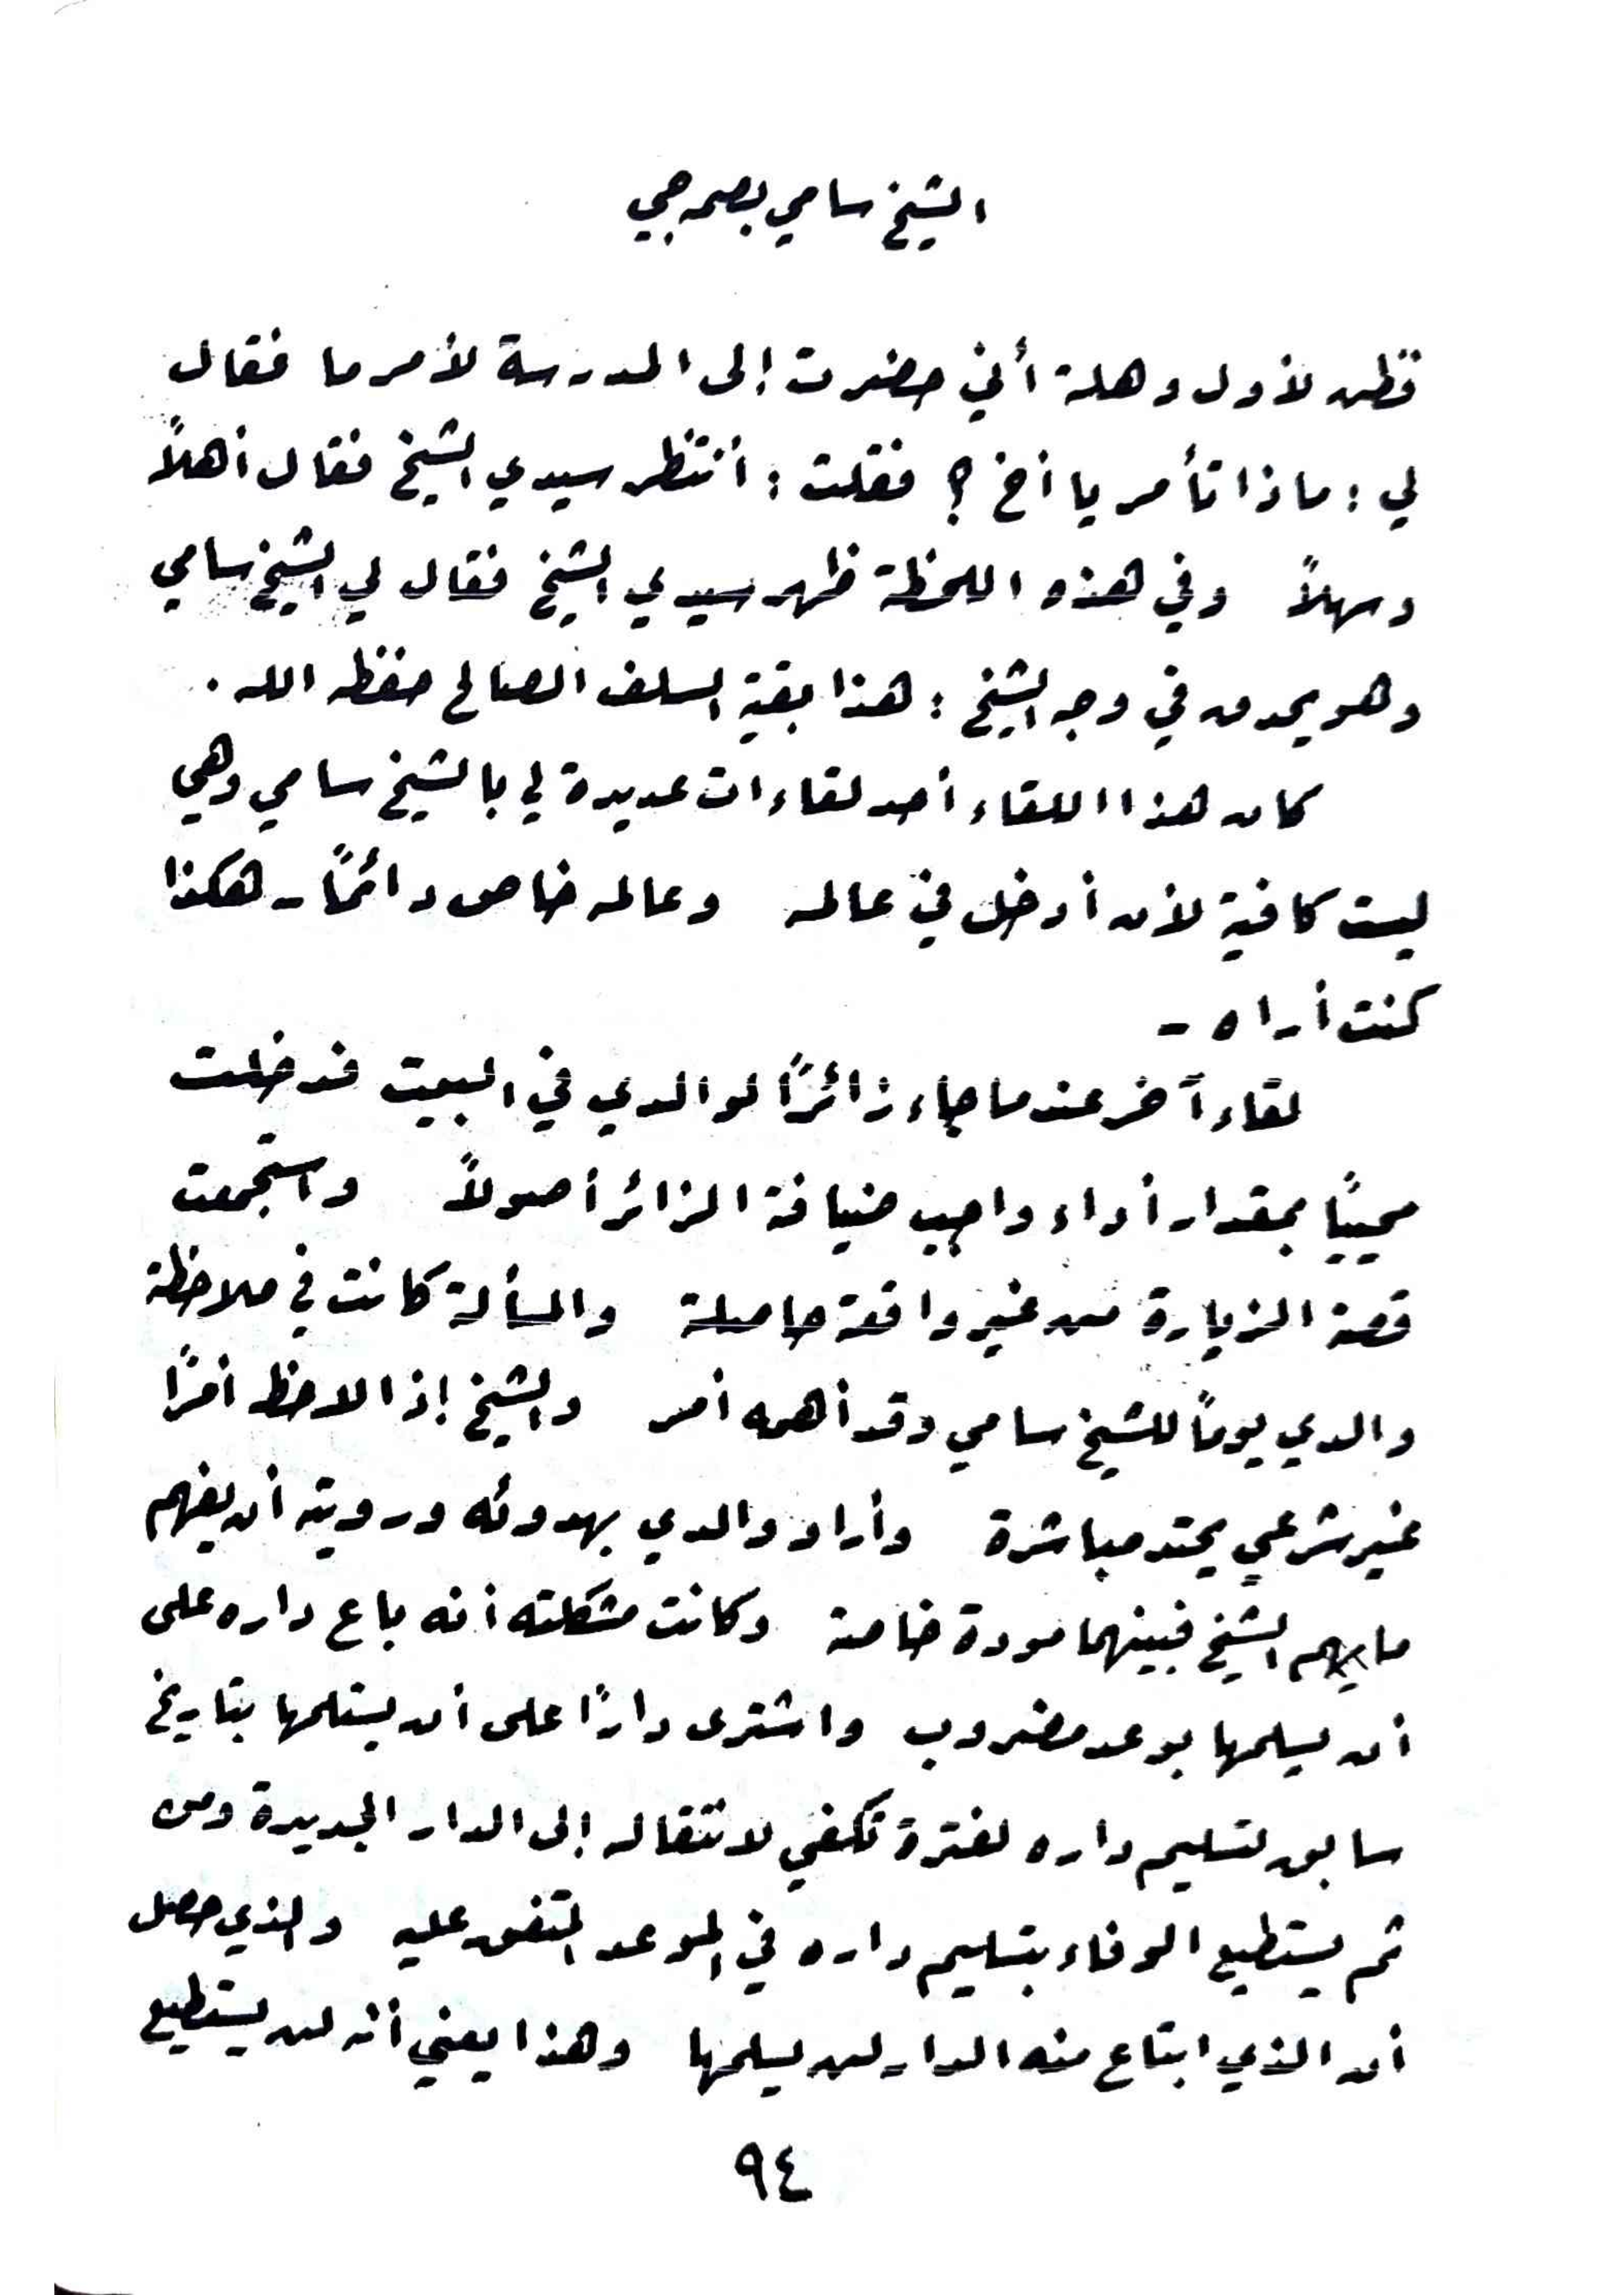 الشيخ سامي بصمه جي
فظن لأول وهلة أني حضرت إلى المدرسة لأمر ما فقال
لي : ماذا تأمر يا أخ ؟ فقلت : أنتظر سيدي الشيخ فقال أهلاً
وسهلاً وفي هذه اللحظة ظهر سيدي الشيخ فقال لي الشيخ سامي
وهو يحدق في وجه الشيخ : هذا بقية السلف الصالح حفظه الله .
كان هذا اللقاء أحد لقاءات عديدة لي بالشيخ سامي وهي
ليست كافية لأن أدخل في عالمه وعالمه خاص دائمًا - هكذا
كنت أراه -
لقاء آخر عندما جاء زائرًا لوالدي في البيت فدخلت
محييًا بمقدار أداء واجب ضيافة الزائر أصولاً واستجمعت
قصة الزيارة من غير واقعة حاصلة والمسألة كانت في ملاحظة
والدي يومًا للشيخ سامي وقد أهمه أمر والشيخ إذا لاحظ أمرًا
غير شرعي يحتد مباشرة وأراد والدي بهدوئه ورويته أن يفهم
ما يهم الشيخ فبينهما مودة خاصة وكانت مشكلته أنه باع داره على
أن يسلمها بوعد مضروب واشترى دارًا على أن يستلمها بتاريخ
سابق لتسليم داره لفترة تكفي لانتقاله إلى الدار الجديدة ومن
ثم يستطيع الوفاء بتسليم داره في الموعد المتفق عليه والذي حصل
أن الذي ابتاع منه الدار لن يسلمها وهذا يعني أنه لن يستطيع
٩٤